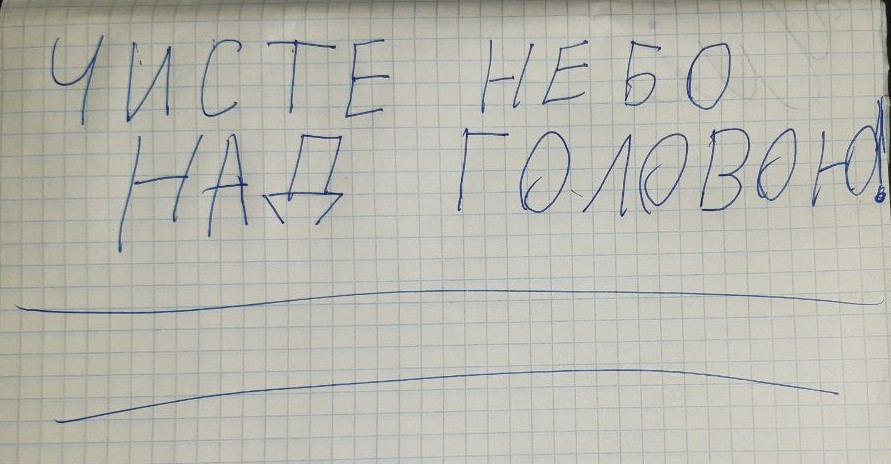 ЧИСТЕ НЕБО
НАД ГОЛОВОЮ!